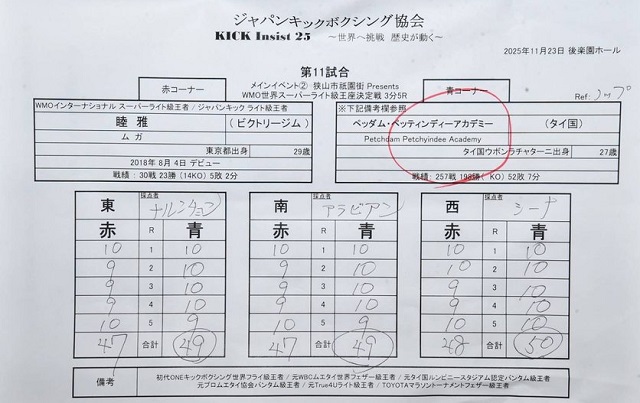 ジャパンキックボクシング協会
KICK Insist 25 ～世界へ挑戦 歴史が動く～
2025年11月23日 後楽園ホール
第11試合
赤コーナー
メインイベント② 狭山市祇園街 Presents
WMO世界スーパーライト級王座決定戦 3分5R
青コーナー
Ref: ノップ
WMOインターナショナル スーパーライト級王者 / ジャパンキック ライト級王者
睦雅 (ビクトリージム)
ムガ
東京都出身 29歳
2018年8月4日 デビュー
戦績: 30戦 23勝 (14KO) 5敗 2分
※下記備考欄参照
ペッダム・ペッティンディーアカデミー (タイ国)
Petchdam Petchyindee Academy
タイ国ウボンラチャターニ出身 27歳
戦績: 257戦 198勝( KO) 52敗 7分
東 採点者 ナルンチョン
赤 R 青
10 1 10
9 2 10
9 3 10
9 4 10
10 5 9
47 合計 49
南 採点者 アラビアン
赤 R 青
10 1 10
9 2 10
9 3 10
9 4 10
10 5 9
47 合計 49
西 採点者 シーナ
赤 R 青
10 1 10
10 2 10
9 3 10
9 4 10
10 5 10
48 合計 50
備考
初代ONEキックボクシング世界フライ級王者 / 元WBCムエタイ世界フェザー級王者 / 元タイ国ルンピニースタジアム認定バンタム級王者
元プロムエタイ協会バンタム級王者 / 元True4Uライト級王者 / TOYOTAマラソントーナメントフェザー級王者